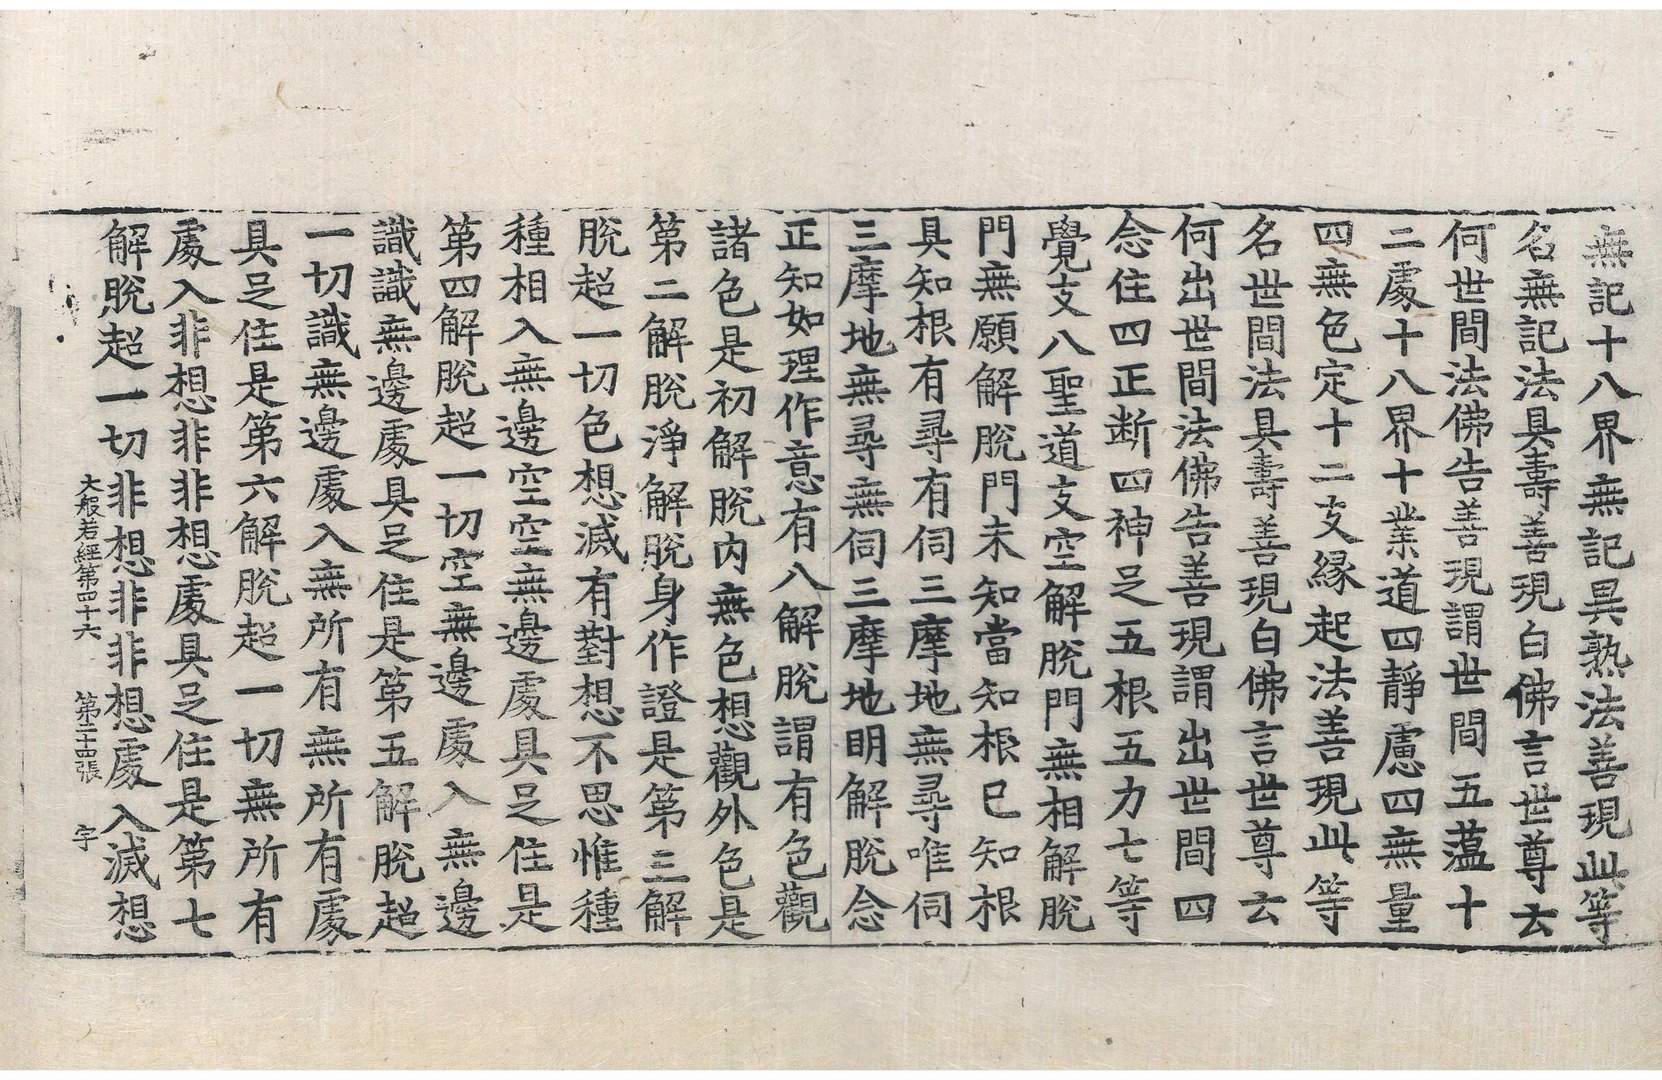 無記十八界無記異熟法善現此等
名無記法具壽善現白佛言世尊云
何世間法佛告善現謂世間五蘊十
二處十八界十業道四靜慮四無量
四無色定十二支緣起法善現此等
名世間法具壽善現白佛言世尊云
何出世間法佛告善現謂出世間四
念住四正断四神足五根五力七等
覺支八聖道支空解脫門無相解脫
門無願解脫門未知當知根已知根
具知根有尋有伺三摩地無尋唯伺
三摩地無尋無伺三摩地明解脫念
正知如理作意有八解脫謂有色觀
諸色是初解脫內無色想觀外色是
第二解脫淨解脫身作證是第三解
脫超一切色想滅有對想不思惟種
種相入無邊空空無邊處具足住是
第四解脫超一切空無邊處入無邊
識識無邊處具足住是第五解脫超
一切識無邊處入無所有無所有處
具足住是第六解脫超一切無所有
處入非想非非想處具足住是第七
解脫超一切非想非非想處入滅想
大般若經第四十六 第二十四張 宇